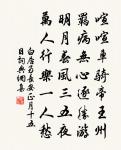 喧喧車騎帝王州
羈病無心逐勝遊
明月春風三五夜
萬人行樂一人愁
白居易長安正月十五
日詞典網集